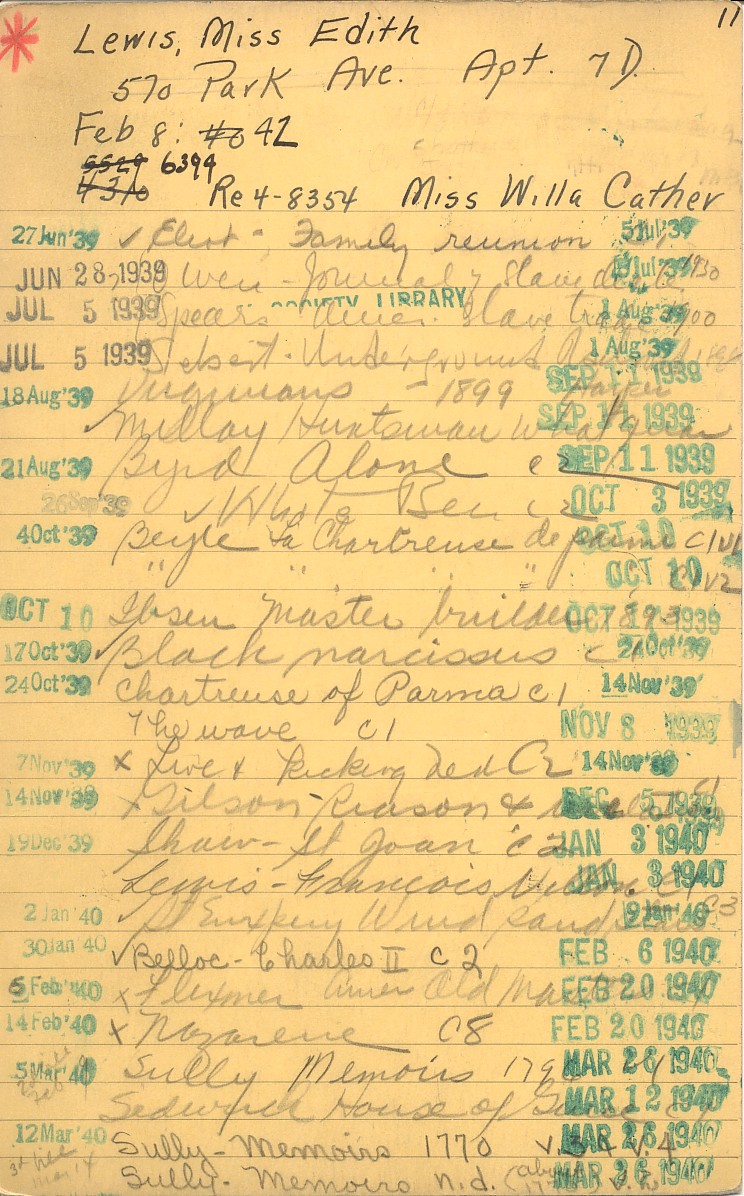 11
Lewis, Miss Edith
570 Park Ave. Apt. 7D.
Feb 8: #6 42
5529 6394
#370 Re 4-8354 Miss Willa Cather
27 Jun '39 ✓ Eliot - Family reunion 5 Jul '39
JUN 28 1939 Owen - Journal of Slave 1930
SOCIETY LIBRARY
JUL 5 1939 Spears Amer. Slave trade 1900 1 Aug '39
JUL 5 1939 Siebert - Underground 1 Aug '39
18 Aug '39 Virginians - 1899 SEP 11 1939
✓ Millay Huntsman What quarry SEP 11 1939
21 Aug '39 Byrd Alone c 2 SEP 11 1939
26 Sep '39 ✓ White Ben c 2 OCT 3 1939
4 Oct '39 Beyle La Chartreuse de parme C1 V1 OCT 10
" " " " C1 V2 OCT 10
OCT 10 Ibsen Master builder 1893 OCT 17 1939
17 Oct '39 Black narcissus c 1 24 Oct '39
24 Oct '39 Chartreuse of Parma c1 14 Nov '39
The wave c1 NOV 8 1939
7 Nov '39 x Live & Kicking Ned C2 14 Nov '39
14 Nov '39 x Gilson - Reason & DEC 5 1939
19 Dec '39 Shaw - St Joan c 2 JAN 3 1940
Lewis - Francois Villon JAN 3 1940
2 Jan '40 ✓ St Exupery Wind sand & stars C3 9 Jan '40
30 Jan 40 ✓ Belloc - Charles II c 2 FEB 6 1940
5 Feb '40 x Flexner Amer Old Masters FEB 20 1940
14 Feb '40 x Nazarene C8 FEB 20 1940
5 Mar '40 Sully Memoirs MAR 26 1940
Sedgwick House of Guise MAR 12 1940
12 Mar '40 Sully - Memoirs 1770 v. 3 + v. 4 MAR 26 1940
Sully - Memoirs n.d. v. 2 MAR 26 1940